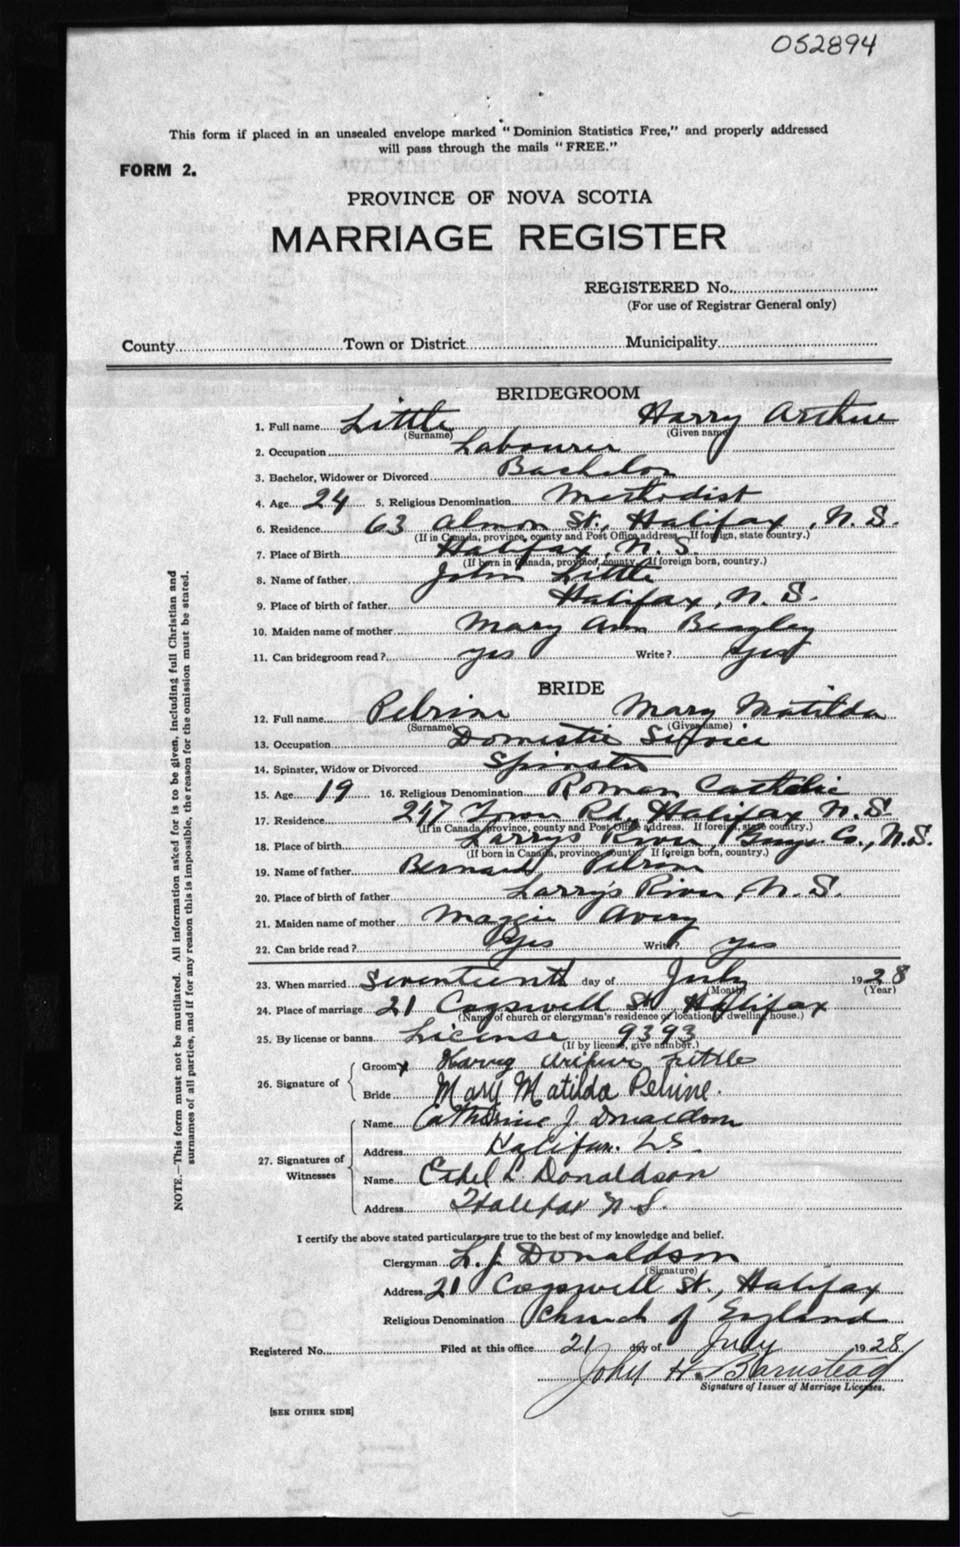 052894
This form if placed in an unsealed envelope marked "Dominion Statistics Free," and properly addressed
will pass through the mails "FREE."
FORM 2.
PROVINCE OF NOVA SCOTIA
MARRIAGE REGISTER
REGISTERED No.
(For use of Registrar General only)
County Town or District Municipality
BRIDEGROOM
1. Full name Little Harry Arthur
(Surname) (Given name)
2. Occupation Labourer
3. Bachelor, Widower or Divorced Bachelor
4. Age 24 5. Religious Denomination Methodist
6. Residence 63 Almon St., Halifax, N.S.
(If in Canada, province, county and Post Office address. If foreign, state country.)
7. Place of Birth Halifax, N.S.
(If born in Canada, province, county. If foreign born, country.)
8. Name of father John Little
9. Place of birth of father Halifax, N.S.
10. Maiden name of mother Mary Ann Beazley
11. Can bridegroom read? yes Write? yes
BRIDE
12. Full name Pelrine Mary Matilda
(Surname) (Given name)
13. Occupation Domestic Service
14. Spinster, Widow or Divorced Spinster
15. Age 19 16. Religious Denomination Roman Catholic
17. Residence 247 Tower Rd., Halifax N.S.
(If in Canada, province, county and Post Office address. If foreign, state country.)
18. Place of birth Larry's River, Guys. Co., N.S.
(If born in Canada, province, county. If foreign born, country.)
19. Name of father Bernard Pelrine
20. Place of birth of father Larry's River, N.S.
21. Maiden name of mother Maggie Avery
22. Can bride read? Yes Write? yes
23. When married Seventeenth day of July 1928
(Month) (Year)
24. Place of marriage 21 Cogswell St Halifax
(Name of church or clergyman's residence or location of dwelling house.)
25. By license or banns License 9393
(If by license, give number.)
26. Signature of
Groom x Harry Arthur Little
Bride Mary Matilda Pelrine.
27. Signatures of Witnesses
Name Catherine J Donaldson
Address Halifax. N.S.
Name Ethel L. Donaldson
Address Halifax N.S.
I certify the above stated particulars are true to the best of my knowledge and belief.
Clergyman L. J. Donaldson
(Signature)
Address 21 Cogswell St., Halifax
Religious Denomination Church of England
Registered No. Filed at this office 21 day of July 1928
John H. Barnstead
Signature of Issuer of Marriage Licenses.
[SEE OTHER SIDE]
NOTE.—This form must not be mutilated. All information asked for is to be given, including full Christian and
surnames of all parties, and if for any reason this is impossible, the reason for the omission must be stated.